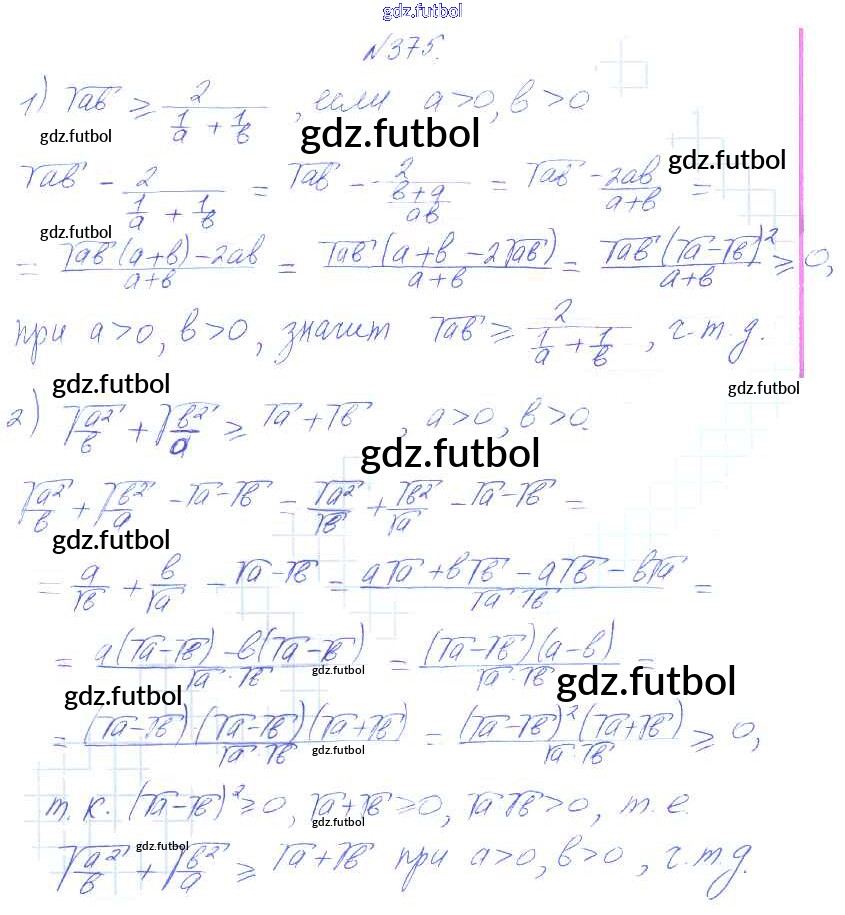 gdz.futbol
№375.
1) √ab ≥ 2/(1/a + 1/b), если a>0, b>0
gdz.futbol gdz.futbol gdz.futbol
√ab − 2/(1/a + 1/b) = √ab − 2/((b+a)/ab) = √ab − 2ab/(a+b) =
gdz.futbol
= (√ab(a+b) − 2ab)/(a+b) = √ab(a+b − 2√ab)/(a+b) = √ab(√a−√b)²/(a+b) ≥ 0,
при a>0, b>0, значит √ab ≥ 2/(1/a + 1/b), ч.т.д.
gdz.futbol gdz.futbol
2) √(a²/b) + √(b²/a) ≥ √a + √b, a>0, b>0.
gdz.futbol
√(a²/b) + √(b²/a) − √a − √b = √a²/√b + √b²/√a − √a − √b =
gdz.futbol
= a/√b + b/√a − √a − √b = (a√a + b√b − a√b − b√a)/(√a √b) =
= (a(√a−√b) − b(√a−√b))/(√a·√b) = (√a−√b)(a−b)/(√a·√b) =
gdz.futbol gdz.futbol gdz.futbol
= (√a−√b)(√a−√b)(√a+√b)/(√a·√b) = (√a−√b)²(√a+√b)/(√a·√b) ≥ 0,
gdz.futbol
т.к. (√a−√b)² ≥ 0, √a+√b ≥ 0, √a √b > 0, т.е.
gdz.futbol
gdz.futbol
√(a²/b) + √(b²/a) ≥ √a + √b при a>0, b>0, ч.т.д.